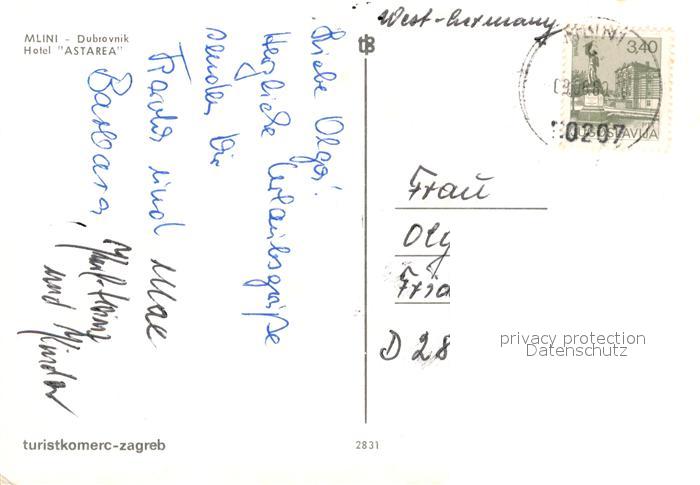 MLINI - Dubrovnik
Hotel "ASTAREA"
Liebe Olga!
Herzliche Urlaubsgrüße
senden Dir
und
Barbara,
und Kinder
West-Germany
MLINI
3,40
JUGOSLAVIJA
20207
Frau
Olg
Frie
D 28
privacy protection
Datenschutz
turistkomerc-zagreb
2831